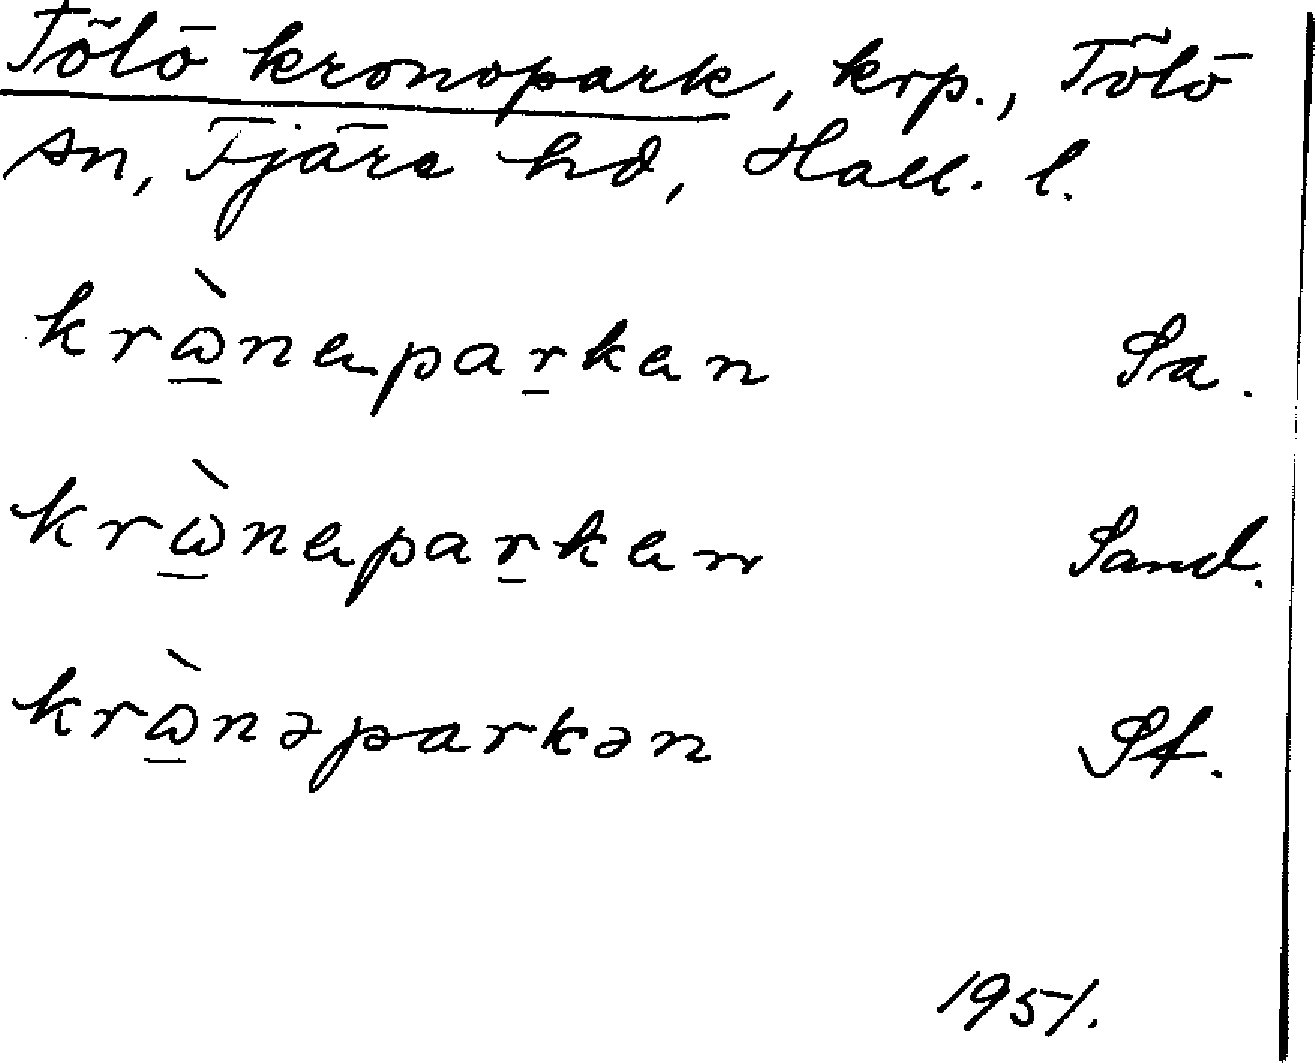 Tölö kronopark, krp., Tölö
sn, Fjäre hd, Hall. l.
krɷ̀naparkan Sa.
krɷ̀naparkan Sand.
krɷ̀nəparkən St.
1951.